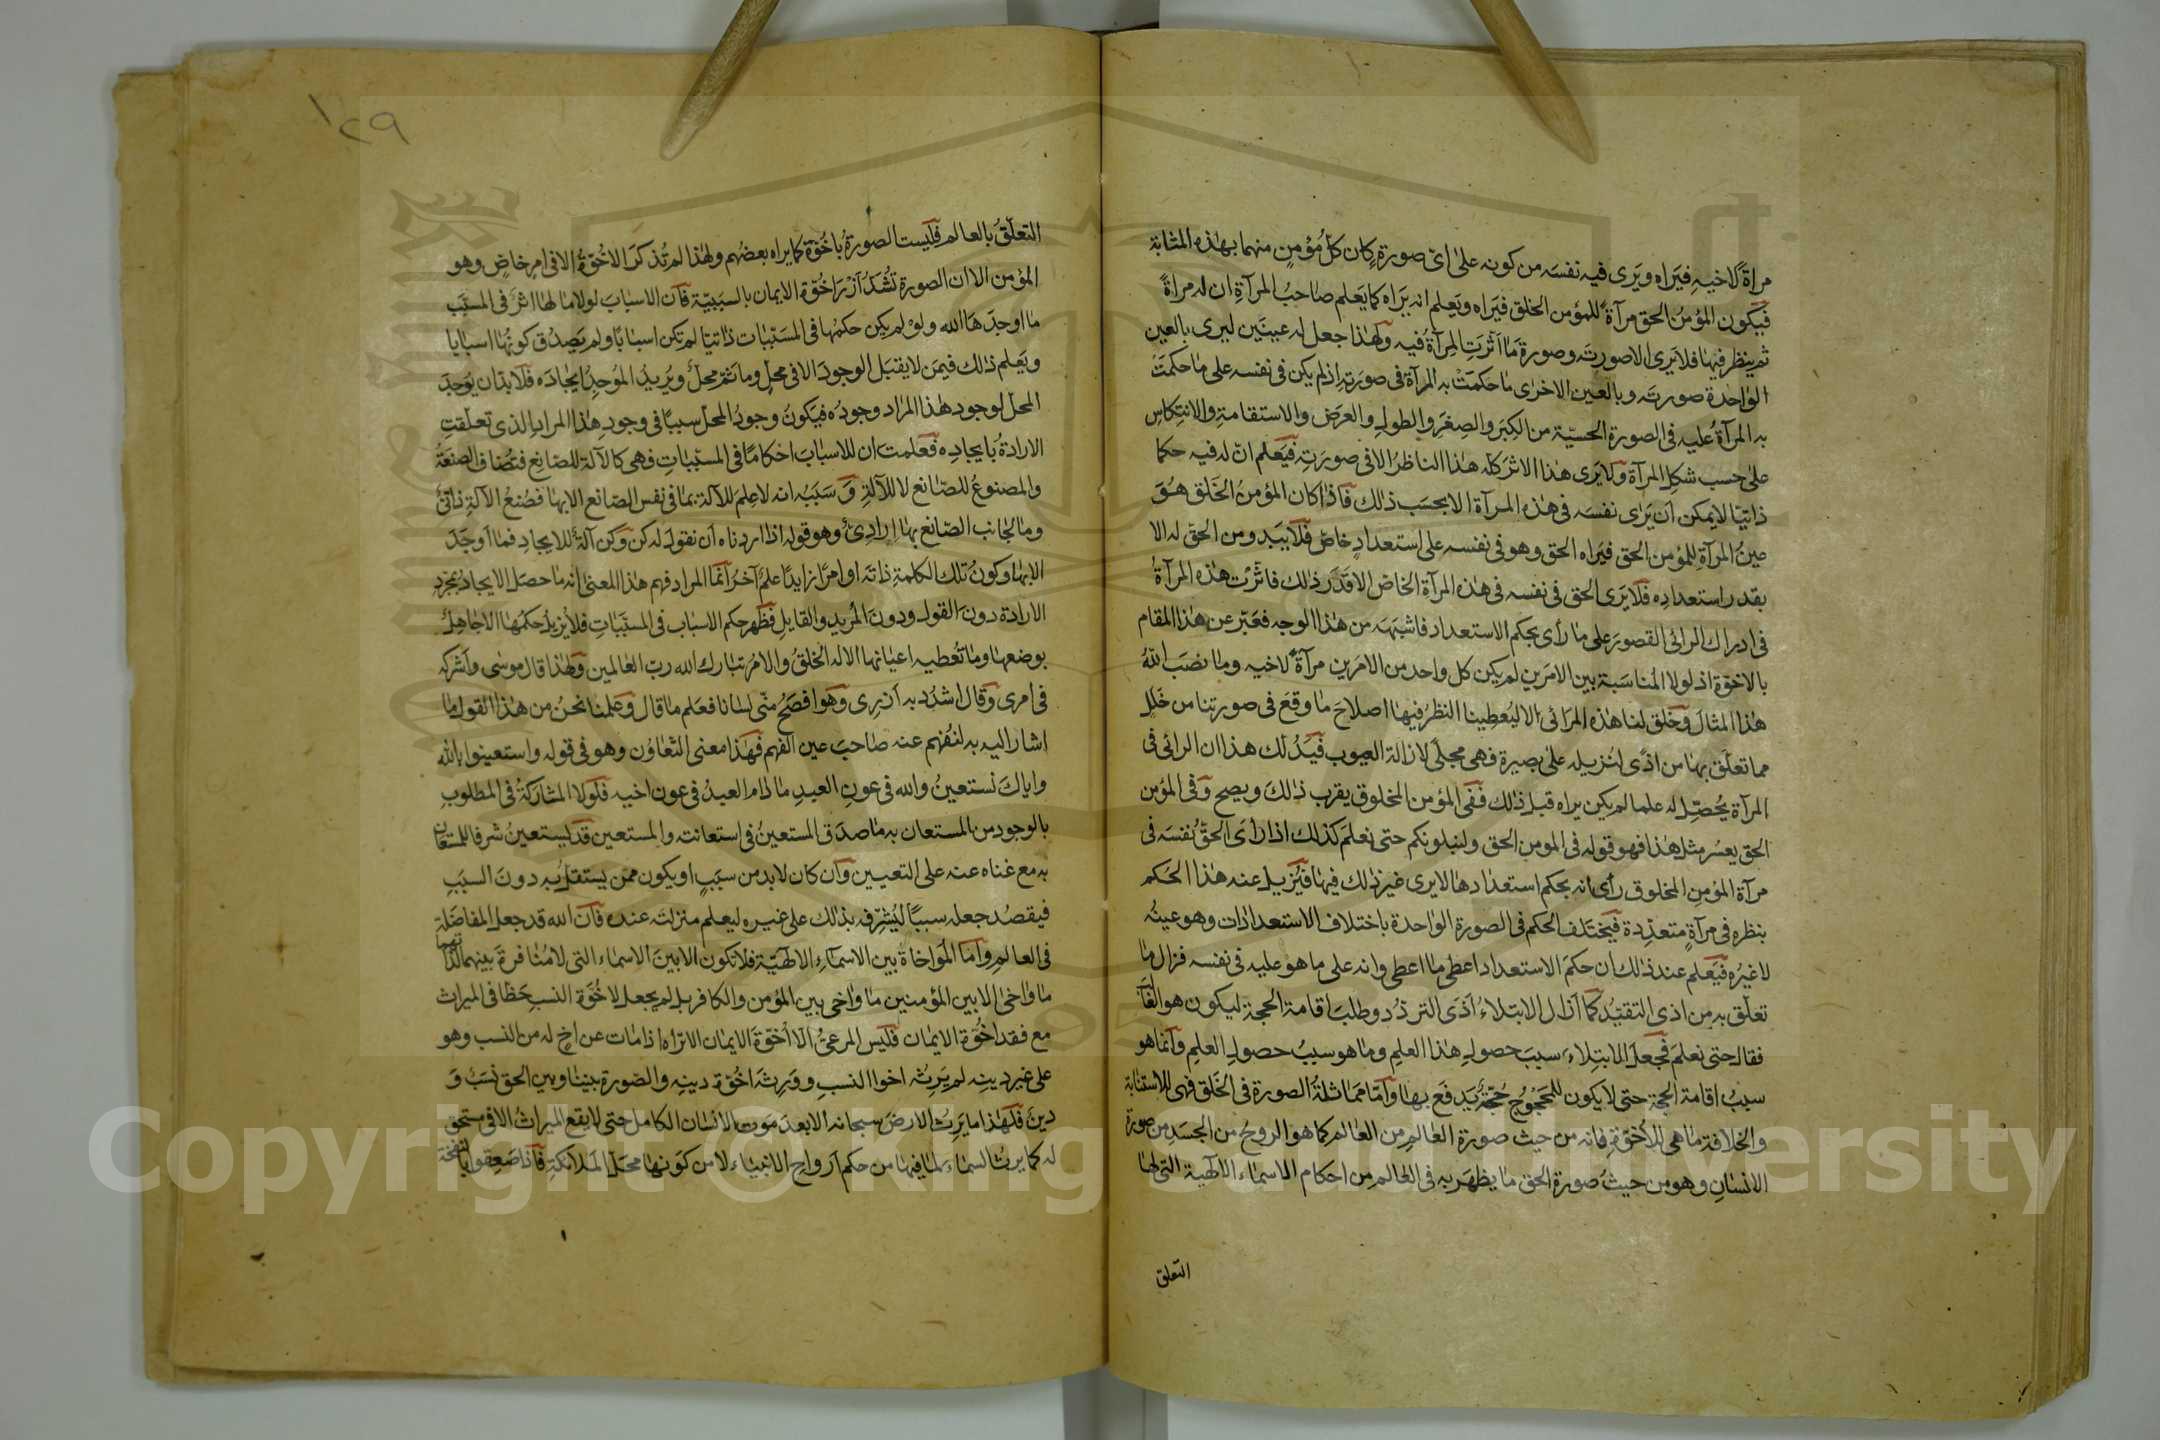 مرآة لاخيه فيراه ويرى فيه نفسه من كونه على اىّ صورة كان كلّ مؤمن منهما بهذه المثابة
فيكون المؤمن الحق مرآة للمؤمن الخلق فيراه ويعلم انه يراه كما يعلم صاحب المرآة ان له مرآة
ثم ينظر فيها فلا يرى الا صورته وصورة ما اثّرت المرآة فيه ولهذا جعل له عينين ليرى بالعين
الواحدة صورته وبالعين الاخرى ما حكمت به المرآة فى صورته اذ لم يكن فى نفسه على ما حكمت
به المرآة عليه فى الصورة الحسيّة من الكبر والصغر والطول والعرض والاستقامة والانتكاس
على حسب شكل المرآة ولا يرى هذا الاثر كلّه هذا الناظر الا فى صورته فيعلم انّ له فيه حكما
ذاتيا لا يمكن ان يرى نفسه فى هذه المرآة الا بحسب ذلك فاذا كان المؤمن الخلق هو
عين المرآة للمؤمن الحق فيراه الحق وهو فى نفسه على استعداد خاصّ فلا يبدو من الحق له الا
بقدر استعداده فلا يرى الحق فى نفسه فى هذه المرآة الخاصّ الا قدر ذلك فاثّرت هذه المرآة
فى ادراك الرائى القصور على ما رأى بحكم الاستعداد فاشبهه من هذا الوجه فعبّر عن هذا المقام
بالاخوّة اذ لولا المناسبة بين الامرين لم يكن كل واحد من الامرين مرآة لاخيه وما نصب الله
هذا المثال وخلق لنا هذه المرائى الا ليعطينا النظر فيها اصلاح ما وقع فى صورتنا من خلل
مما تعلّق بها من اذى لنزيله على بصيرة فهى مجلى لازالة العيوب فيدلّك هذا ان الرائى فى
المرآة يحصل له علما لم يكن يراه قبل ذلك ففى المؤمن المخلوق يقرب ذلك ويصح وفى المؤمن
الحق يعسر مثل هذا فهو قوله فى المومن الحق ولنبلونكم حتى نعلم كذلك اذا رأى الحقّ نفسه فى
مرآة المؤمن المخلوق رأى انه بحكم استعدادها لا يرى غير ذلك فيها فيزيل عنه هذا الحكم
بنظره فى مرآة متعدّدة فيختلف الحكم فى الصورة الواحدة باختلاف الاستعدادات وهو عينه
لا غيره فيعلم عند ذلك ان حكم الاستعداد اعطى ما اعطى وانه على ما هو عليه فى نفسه فزال ما
تعلّق به من اذى التقيّد كما ازال الابتلاء اذى التردّد وطلب اقامة الحجة ليكون هو
فقال حتى نعلم فجعل الابتلاء سبب حصول هذا العلم وما هو سبب حصول العلم وانما هو
سبب اقامة الحجة حتى لا يكون للمحجوج حجّة يدفع بها وامّا مماثلة الصورة فى الخلق فهى للاستنابة
والخلافة ما هى للأخوّة فانه من حيث صورة العالم من العالم كما هو الروح من الجسد من صورة
الانسان وهو من حيث صورة الحق ما يظهر به فى العالم من احكام الاسماء الالٓهية التى لها
التعلق
١٢٩
التعلّق بالعالم فليست الصورة بأخوّة كما يراه بعضهم ولهذا لم تذكر الاخوّة الا فى امر خاص وهو
المؤمن الا ان الصورة تشدّ ازر اخوّة الايمان بالسببيّة فان الاسباب لولا ما لها اثر فى المسبّب
ما اوجدها الله ولو لم يكن حكمها فى المسبّبات ذاتيا لم تكن اسبابا ولم يصدق كونها اسبابا
ويعلم ذلك فيمن لا يقبل الوجود الا فى محل وما ثم محلّ ويريد الموجد ايجاده فلا بدّ ان يوجد
المحلّ لوجود هذا المراد وجوده فيكون وجود المحل سببا فى وجود هذا المراد الذى تعلّقت
الارادة بايجاده فعلمت ان للاسباب احكاما فى المسبّبات فهى كالآلة للصانع فتضاف الصنعة
والمصنوع للصّانع لا للآلة وسببه انه لا علم للآلة بما فى نفس الصانع الا بها فصنع الآلة ذاتىّ
وما لجانب الصّانع بها ارادىّ وهو قوله اذا اردناه ان نقول له كن وكن آلة للايجاد فما اوجد
الا بها وكون تلك الكلمة ذاته او امرا زايدا علم آخر انما المراد فهم هذا المعنى انه ما حصل الايجاد بمجرد
الارادة دون القول ودون المريد والقايل فظهر حكم الاسباب فى المسبّبات فلا يزيل حكمها الا جاهل
بوضعها وما تعطيه اعيانها الا له الخلق والامر تبارك الله رب العالمين ولهذا قال موسى واشركه
فى امرى وقال اشدد به ازرى وهو افصح منّى لسانا فعلم ما قال وعلمنا نحن من هذا القول ما
اشار اليه به لنفهم عنه صاحب عين الفهم فهذا معنى التّعاون وهو فى قوله واستعينوا بالله
واياك نستعين والله فى عون العبد ما دام العبد فى عون اخيه فلولا المشاركة فى المطلوب
بالوجود من المستعان به ما صدق المستعين فى استعانته والمستعين قد يستعين شرفا للمستعان
به مع غناه عنه على التعيين وان كان لا بد من سبب او يكون ممن يستقلّ به دون السبب
فيقصد جعله سببا ليشرّفه بذلك على غيره ليعلم منزلته عنده فان الله قد جعل المفاضلة
فى العالم واما المواخاة بين الاسماء الالٓهيّة فلا تكون الا بين الاسماء التى لا منافرة بينهما
ما واخى الا بين المؤمنين ما واخى بين المؤمن والكافر بل لم يجعل لاخوّة النسب حظا فى الميراث
مع فقد اخوّة الايمان فليس المرعىّ الا اخوّة الايمان الا تراه اذا مات عن اخ له من النسب وهو
على غير دينه لم يرثه اخو النسب وورثه اخوّة دينه والصورة بيننا وبين الحق نسب و
دين فلهذا ما يرث الارض سبحانه الا بعد موت الانسان الكامل حتى لا يقع الميراث الا فى مستحق
له كما يرث السماء لما فيها من حكم ارواح الانبياء لا من كونها محلّ الملائكة فاذا صعقوا بالنفخة
Copyright © King Saud University